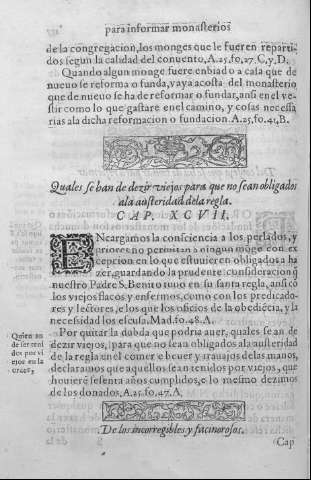 para informar monasterios
de la congregacion, los monges que le fueren reparti-
dos segun la calidad del conuento, A.25.fo,27.C,y,D.
Quando algun monge fuere enbiado a casa que de
nueuo se reforma o funda, vaya a costa del monasterio
que de nueuo se ha de reformar o fundar, ansi en el ve-
stir como lo que gastare en el camino, y cosas necessa
rias ala dicha reformacion o fundacion. A.25.fo.41,B.
Quales se han de dezir viejos para que no sean obligados
ala austeridad dela regla.
CAP. XCVII.
ENcargamos la consciencia a los perlados, y
priores no permitan a ningun mõge con ex
cepcion en lo que estuuieren obligados a ha
zer, guardando la prudente consideracion q̃
nuestro Padre S. Benito tuuo en su santa regla, ansi cõ
los viejos flacos y enfermos, como con los predicado-
res y lectores, e los que los oficios de la obediẽcia, y la
necesidad los escusa. Mad.fo.48.A.
Por quitar la dubda que podria auer, quales se an de
dezir viejos, para que no sean obligados ala austeridad
de la regla en el comer e beuer y trauajos delas manos,
declaramos que aquellos sean tenidos por viejos, que
houierẽ sesenta años cumplidos, e lo mesmo dezimos
de los donados, A.25.fo.47.A.
Quien an
de ser teni
dos por vi
ejos en la
orden,
De los incorregibles y facinorosos.
Cap